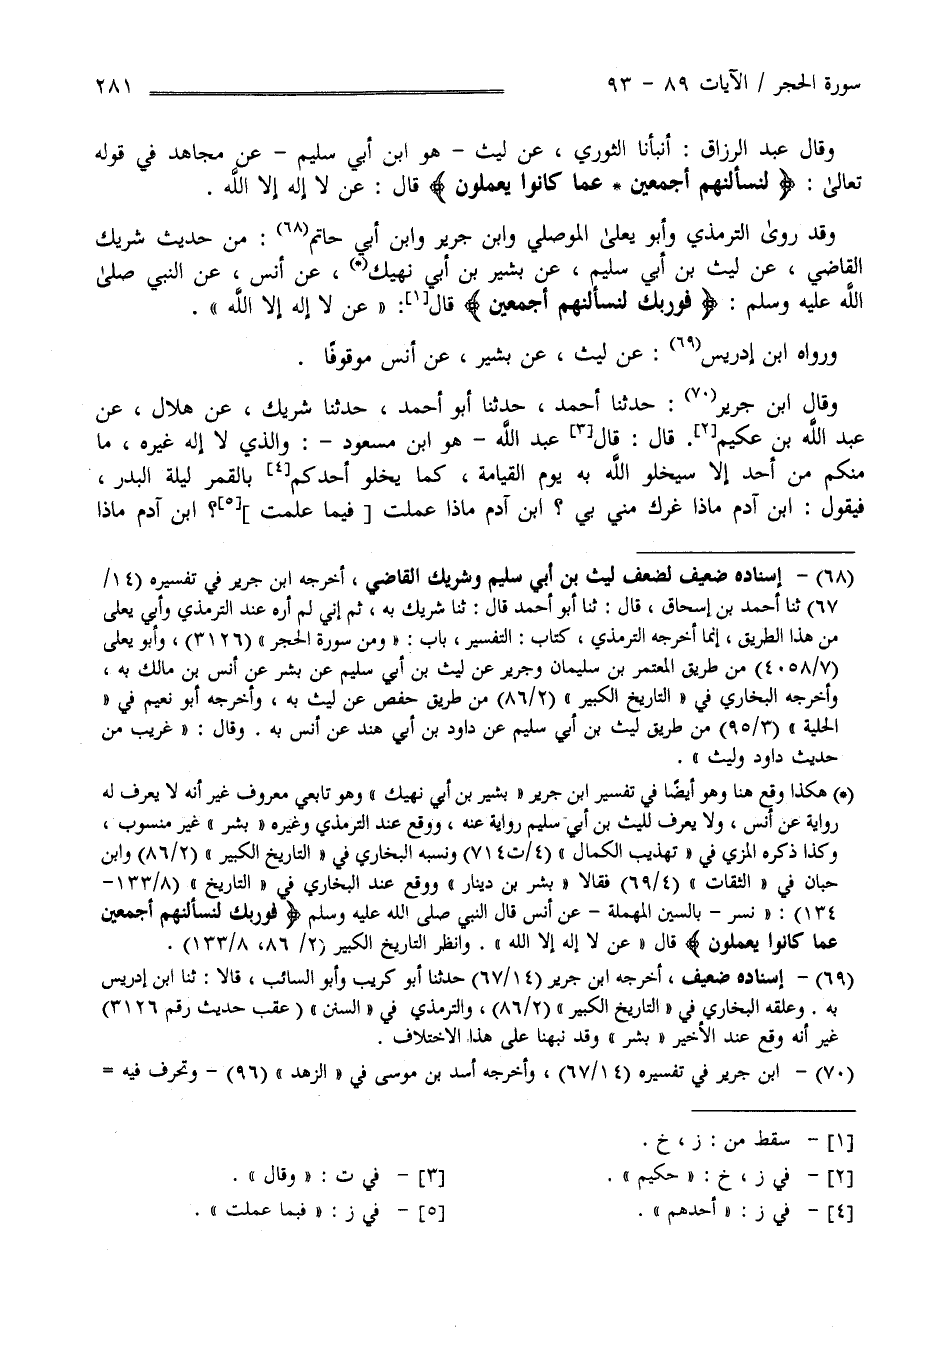 سورة الحجر / الآيات ٨٩ - ٩٣ ٢٨١
وقال عبد الرزاق : أنبأنا الثوري ، عن ليث - هو ابن أبي سليم - عن مجاهد في قوله
تعالىٰ : ﴿ لنسألنهم أجمعين * عما كانوا يعملون ﴾ قال : عن لا إله إلا اللَّه .
وقد روىٰ الترمذي وأبو يعلىٰ الموصلي وابن جرير وابن أبي حاتم(٦٨) : من حديث شريك
القاضي ، عن ليث بن أبي سليم ، عن بشير بن أبي نهيك(*) ، عن أنس ، عن النبي صلىٰ
اللَّه عليه وسلم : ﴿ فوربك لنسألنهم أجمعين ﴾ قال[١]: « عن لا إله إلا اللَّه » .
ورواه ابن إدريس(٦٩) : عن ليث ، عن بشير ، عن أنس موقوفًا .
وقال ابن جرير(٧٠) : حدثنا أحمد ، حدثنا أبو أحمد ، حدثنا شريك ، عن هلال ، عن
عبد اللَّه بن عكيم[٢]. قال : قال[٣] عبد اللَّه - هو ابن مسعود - : والذي لا إله غيره ، ما
منكم من أحد إلا سيخلو اللَّه به يوم القيامة ، كما يخلو أحدكم[٤] بالقمر ليلة البدر ،
فيقول : ابن آدم ماذا غرك مني بي ؟ ابن آدم ماذا عملت [ فيما علمت ][٥]؟ ابن آدم ماذا
(٦٨) - إسناده ضعيف لضعف ليث بن أبي سليم وشريك القاضي ، أخرجه ابن جرير في تفسيره (١٤/
٦٧) ثنا أحمد بن إسحاق ، قال : ثنا أبو أحمد قال : ثنا شريك به ، ثم إني لم أره عند الترمذي وأبي يعلى
من هذا الطريق ، إنما أخرجه الترمذي ، كتاب : التفسير ، باب : « ومن سورة الحجر » (٣١٢٦) ، وأبو يعلى
(٤٠٥٨/٧) من طريق المعتمر بن سليمان وجرير عن ليث بن أبي سليم عن بشر عن أنس بن مالك به ،
وأخرجه البخاري في « التاريخ الكبير » (٨٦/٢) من طريق حفص عن ليث به ، وأخرجه أبو نعيم في «
الحلية » (٩٥/٣) من طريق ليث بن أبي سليم عن داود بن أبي هند عن أنس به . وقال : « غريب من
حديث داود وليث » .
(*) هكذا وقع هنا وهو أيضًا في تفسير ابن جرير « بشير بن أبي نهيك » وهو تابعي معروف غير أنه لا يعرف له
رواية عن أنس ، ولا يعرف لليث بن أبي سليم رواية عنه ، ووقع عند الترمذي وغيره « بشر » غير منسوب ،
وكذا ذكره المزي في « تهذيب الكمال » (٤/ت٧١٤) ونسبه البخاري في « التاريخ الكبير » (٨٦/٢) وابن
حبان في « الثقات » (٦٩/٤) فقالا « بشر بن دينار » ووقع عند البخاري في « التاريخ » (١٣٣/٨-
١٣٤) : « نسر - بالسين المهملة - عن أنس قال النبي صلى الله عليه وسلم ﴿ فوربك لنسألنهم أجمعين
عما كانوا يعملون ﴾ قال « عن لا إله إلا الله » . وانظر التاريخ الكبير (٢/ ٨٦، ١٣٣/٨) .
(٦٩) - إسناده ضعيف ، أخرجه ابن جرير (٦٧/١٤) حدثنا أبو كريب وأبو السائب ، قالا : ثنا ابن إدريس
به . وعلقه البخاري في « التاريخ الكبير » (٨٦/٢) ، والترمذي في « السنن » ( عقب حديث رقم ٣١٢٦)
غير أنه وقع عند الأخير « بشر » وقد نبهنا على هذا الاختلاف .
(٧٠) - ابن جرير في تفسيره (٦٧/١٤) ، وأخرجه أسد بن موسى في « الزهد » (٩٦) - وتحرف فيه =
[١] - سقط من : ز ، خ .
[٢] - في ز ، خ : « حكيم » . [٣] - في ت : « وقال » .
[٤] - في ز : « أحدهم » . [٥] - في ز : « فبما عملت » .